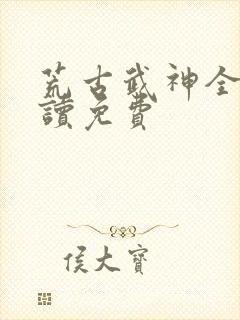 荒古武神全
讀免費
侯大寶